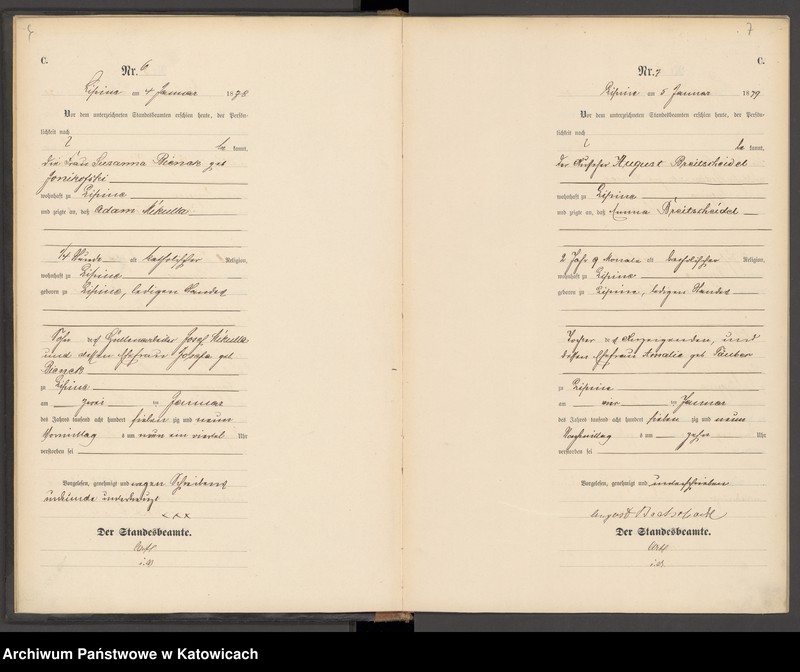 C.
Nr. 6
Lipine am 4 Januar 1878
Vor dem unterzeichneten Standesbeamten erschien heute, der Persön-
lichkeit nach
be kannt,
die Frau Susanna Bienek geb
wohnhaft zu Lipine
und zeigte an, daß Adam Mikulla
1/4 Stunde alt katholischer Religion,
wohnhaft zu Lipine
geboren zu Lipine, ledigen Standes
Sohn des Hüttenarbeiter Josef Mikulla
und dessen Ehefrau Josefa geb
Bienek
zu Lipine
am zwei ten Januar
des Jahres tausend acht hundert sieben zig und neun
Vormittag s um neun ein viertel Uhr
verstorben sei
Vorgelesen, genehmigt und wegen Schreibens
unkunde unterkreuzt
×××
Der Standesbeamte.
7
C.
Nr. 7
Lipine am 5 Januar 1879
Vor dem unterzeichneten Standesbeamten erschien heute, der Persön-
lichkeit nach
be kannt,
der August Breitscheidel
wohnhaft zu Lipine
und zeigte an, daß Emma Breitscheidel
2 Jahr 9 Monate alt katholischer Religion,
wohnhaft zu Lipine
geboren zu Lipine, ledigen Standes
Tochter des Anzeigenden, und
dessen Ehefrau Amalie geb Täuber
zu Lipine
am vier ten Januar
des Jahres tausend acht hundert sieben zig und neun
Nachmittag s um zehn Uhr
verstorben sei
Vorgelesen, genehmigt und unterschrieben
August
Der Standesbeamte.
Archiwum Państwowe w Katowicach